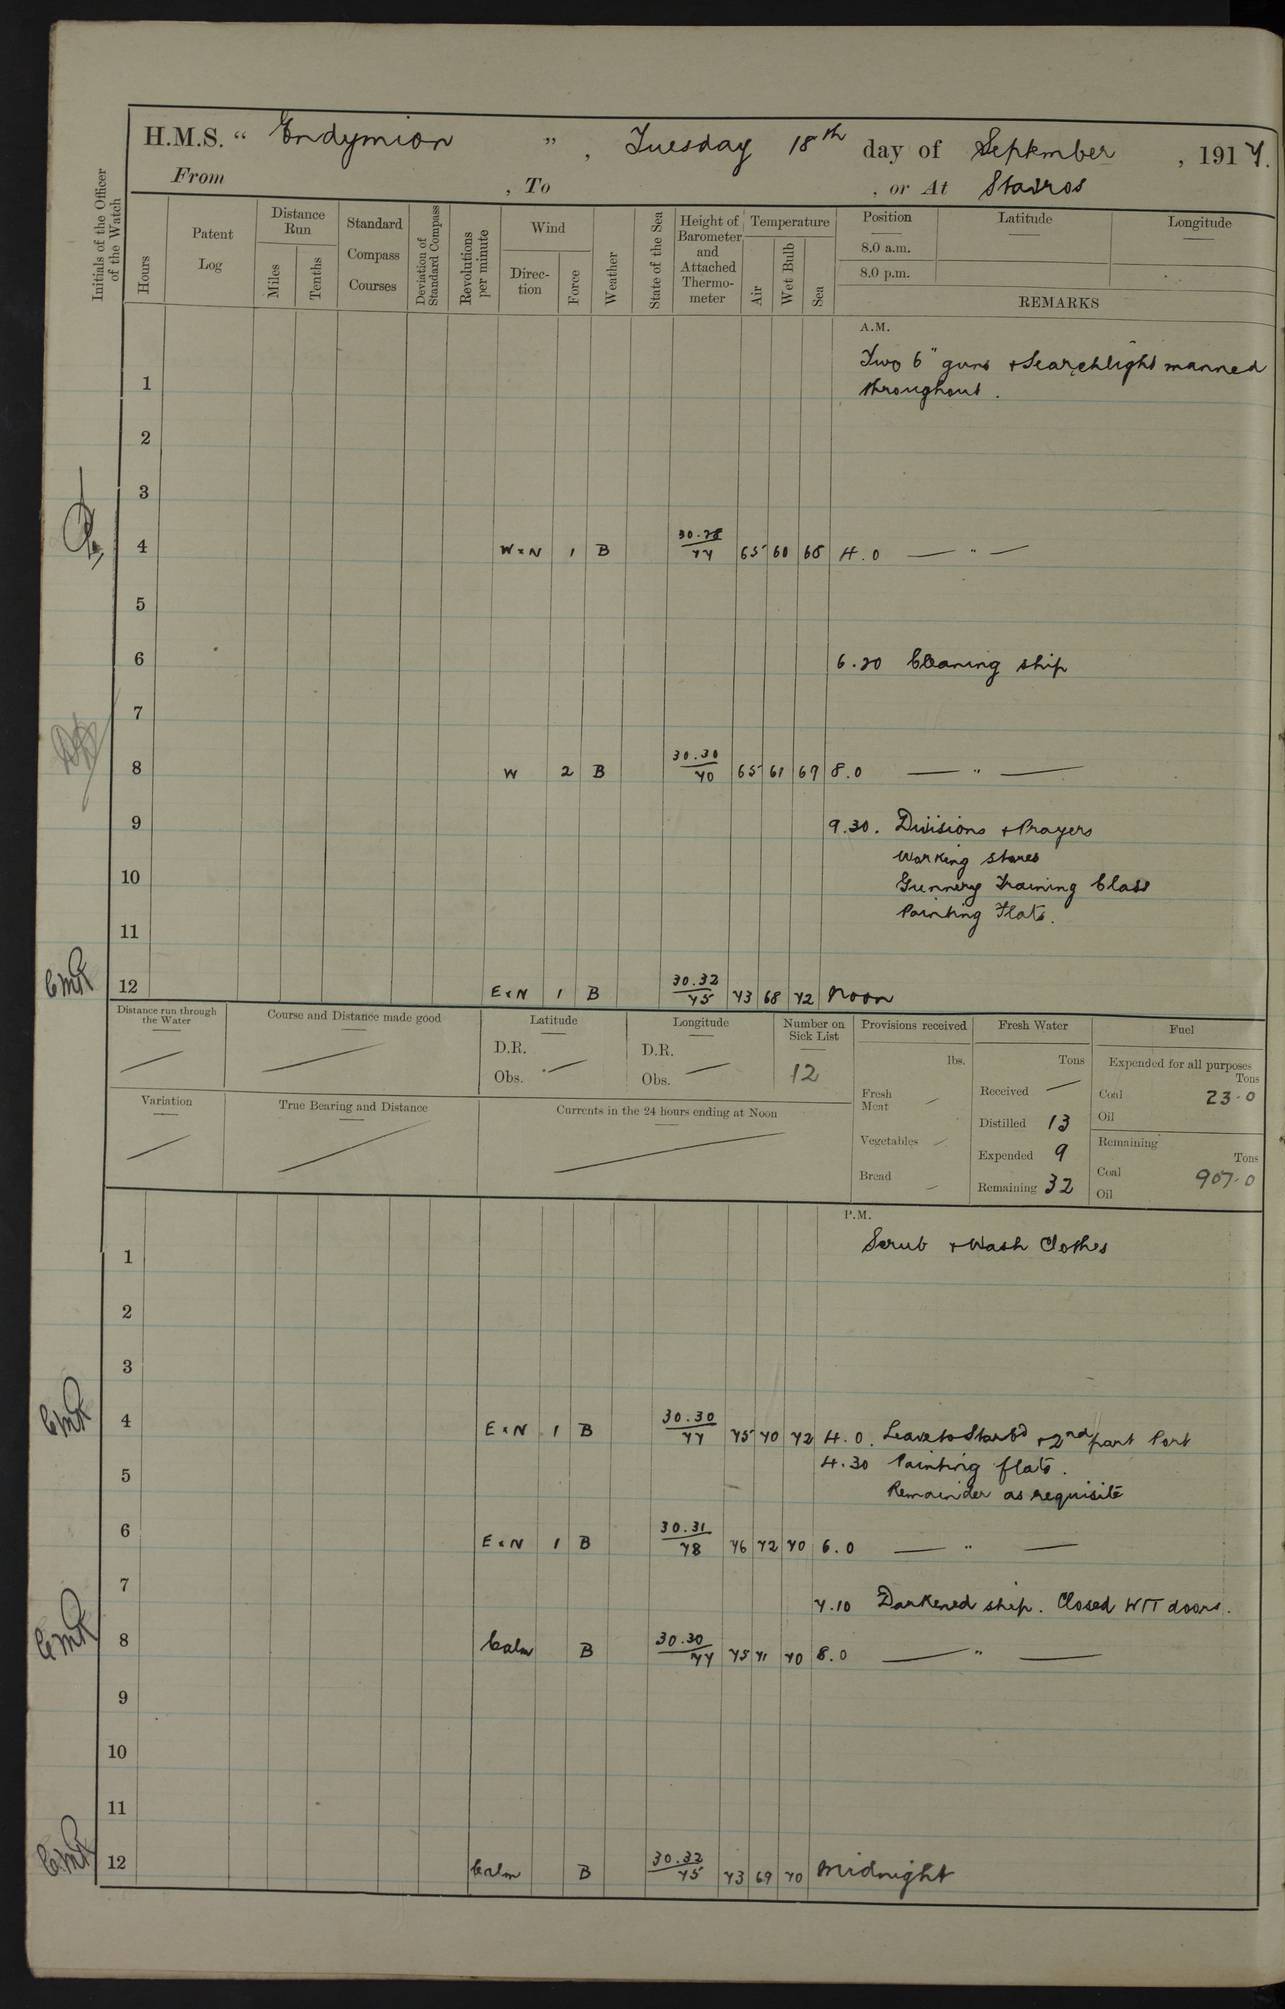 H.M.S. “ Endymion ” , Tuesday 18th day of September , 1917.
From , To , or At Stavros
Initials of the Officer of the Watch
Hours
Patent Log
Distance Run
Miles
Tenths
Standard Compass Courses
Deviation of Standard Compass
Revolutions per minute
Wind
Direc-tion
Force
Weather
State of the Sea
Height of Barometer and Attached Thermo-meter
Temperature
Air
Wet Bulb
Sea
Position
Latitude
Longitude
8.0 a.m.
8.0 p.m.
REMARKS
A.M.
Two 6" guns + Searchlight manned
1 throughout.
2
3
4 W x N 1 B 30.28/77 65 60 68 4.0 — " —
5
6 6.20 Cleaning ship
7
8 W 2 B 30.30/70 65 61 69 8.0 — " —
9 9.30. Divisions + Prayers
Working stores
10 Gunnery Training Class
Painting Flats.
11
CMK 12 E x N 1 B 30.32/75 73 68 72 Noon
Distance run through the Water
Course and Distance made good
Latitude
D.R.
Obs.
Longitude
D.R.
Obs.
Number on Sick List
12
Provisions received
lbs.
Fresh Meat
Vegetables
Bread
Fresh Water
Tons
Received —
Distilled 13
Expended 9
Remaining 32
Fuel
Expended for all purposes
Tons
Coal 23.0
Oil
Remaining
Tons
Coal 907.0
Oil
Variation
True Bearing and Distance
Currents in the 24 hours ending at Noon
P.M.
1 Scrub + Wash Clothes
2
3
CMK 4 E x N 1 B 30.30/77 75 70 72 4.0. Leave to Starbd + 2nd part Port
4.30 Painting flats.
5 Remainder as requisite
6 E x N 1 B 30.31/78 76 72 70 6.0 — " —
7 7.10 Darkened ship. Closed WT doors.
CMK 8 Calm B 30.30/77 75 71 70 8.0 — " —
9
10
11
CMK 12 Calm B 30.32/75 73 69 70 Midnight